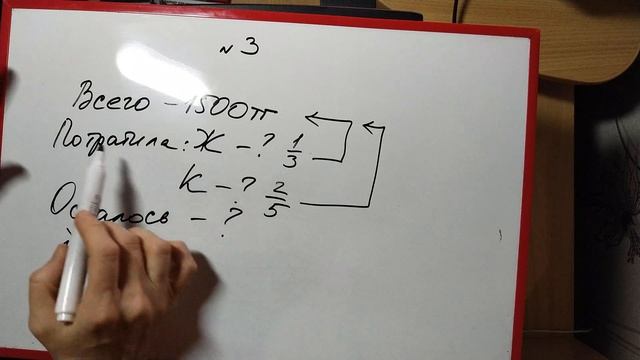 №3
Всего - 1500тг
Потратила: Ж - ? 1/3
К - ? 2/5
Осталось - ?